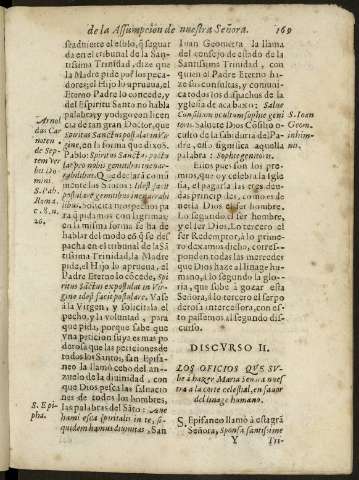 de la Assumpcion de nuestra Señora. 169
se aduierte el estilo, q̃ se guar
da en el tribunal de la San-
tissima Trinidad, dize que
la Madre pide por los peca-
dores; el Hijo lo aprueua, el
Eterno Padre lo concede, y
del Espiritu Santo no habla
palabra; y yo digo con licen
cia de tan gran Doctor, que
Spiritus Sanctus postulat in Vir
gine, en la forma que dixo S.
Pablo: Spiritus Sanctus postu
lat pro nobis gemitibus inenar
rabilibus. Que declarã comũ
mente los Santos: Idest facit
postulare gemitibus inenarra
bilibus. Solicita nuestro
ra q̃ pidamos con lagrimas;
en la misma forma se ha de
hablar del modo cõ q̃ se des-
pacha en el tribunal de la Sã
tissima Trinidad, la Madre
pide, el Hijo lo aprueua, el
Padre Eterno lo cõcede, Spi
ritus Sãctus expostulat in Vir
gine idest facit postulare. Vase
à la Virgen, y solicitala el
pecho, y la voluntad, para
que pida, porque sabe que
vna peticion suya es mas po
derosa que las peticiones de
todos los Santos, san Epifa-
neo la llamò cebo del an-
zuelo de la diuinidad, con
que Dios pesca las saluacio-
nes de todos los hombres,
las palabras del Sãto: Aue
hami esca spiritalis in te, si-
quidem hamus diuinitas. San
Arnol
das Car
noten.
de Sep-
tem Ver
bis Do
mini.
S. Pab.
Roma.
c. 8. n.
26.
S. Epi-
pha.
Iuan Geometra la llama
del consejo de estado de la
Santissima Trinidad, con
quien el Padre Eterno ha-
ze sus Consultas, y comuni-
ca todos los despachos de la
yglesia de acabaxo: Salue
Consilium occultum sophie geni
toris. Saluete Dios Cõsejo o-
culto de la sabiduria del Pa-
dre, esto significa aquella
palabra: Sophe genitoris.
Estos pues son los pre-
mios, que oy celebra la Igle
sia, el pagarla las tres deu-
das principales, como es ne-
cessaria Dios el ser hombre.
Lo segundo el ser hombre,
y el ser Dios. Lo tercero el
ser Redemptor, à lo prime-
ro dexamos dicho, corres-
ponden todas las mercedes
que Dios haze al linage huma-
no, à lo segundo la glo-
ria, que sube à gozar esta
Señora, à lo tercero el ser po
derosa intercessora, con es-
to passemos al segundo dis-
curso.
S. Ioan
Geom.
in him-
no.
DISCVRSO II.
LOS OFICIOS QVE SV-
be à hazer Maria Señora nues
tra a la corte celestial, en fauor
del linage humano.
S. Epifaneo llamò à esta grã
Señora, Sponsa santissime
Y Tri-